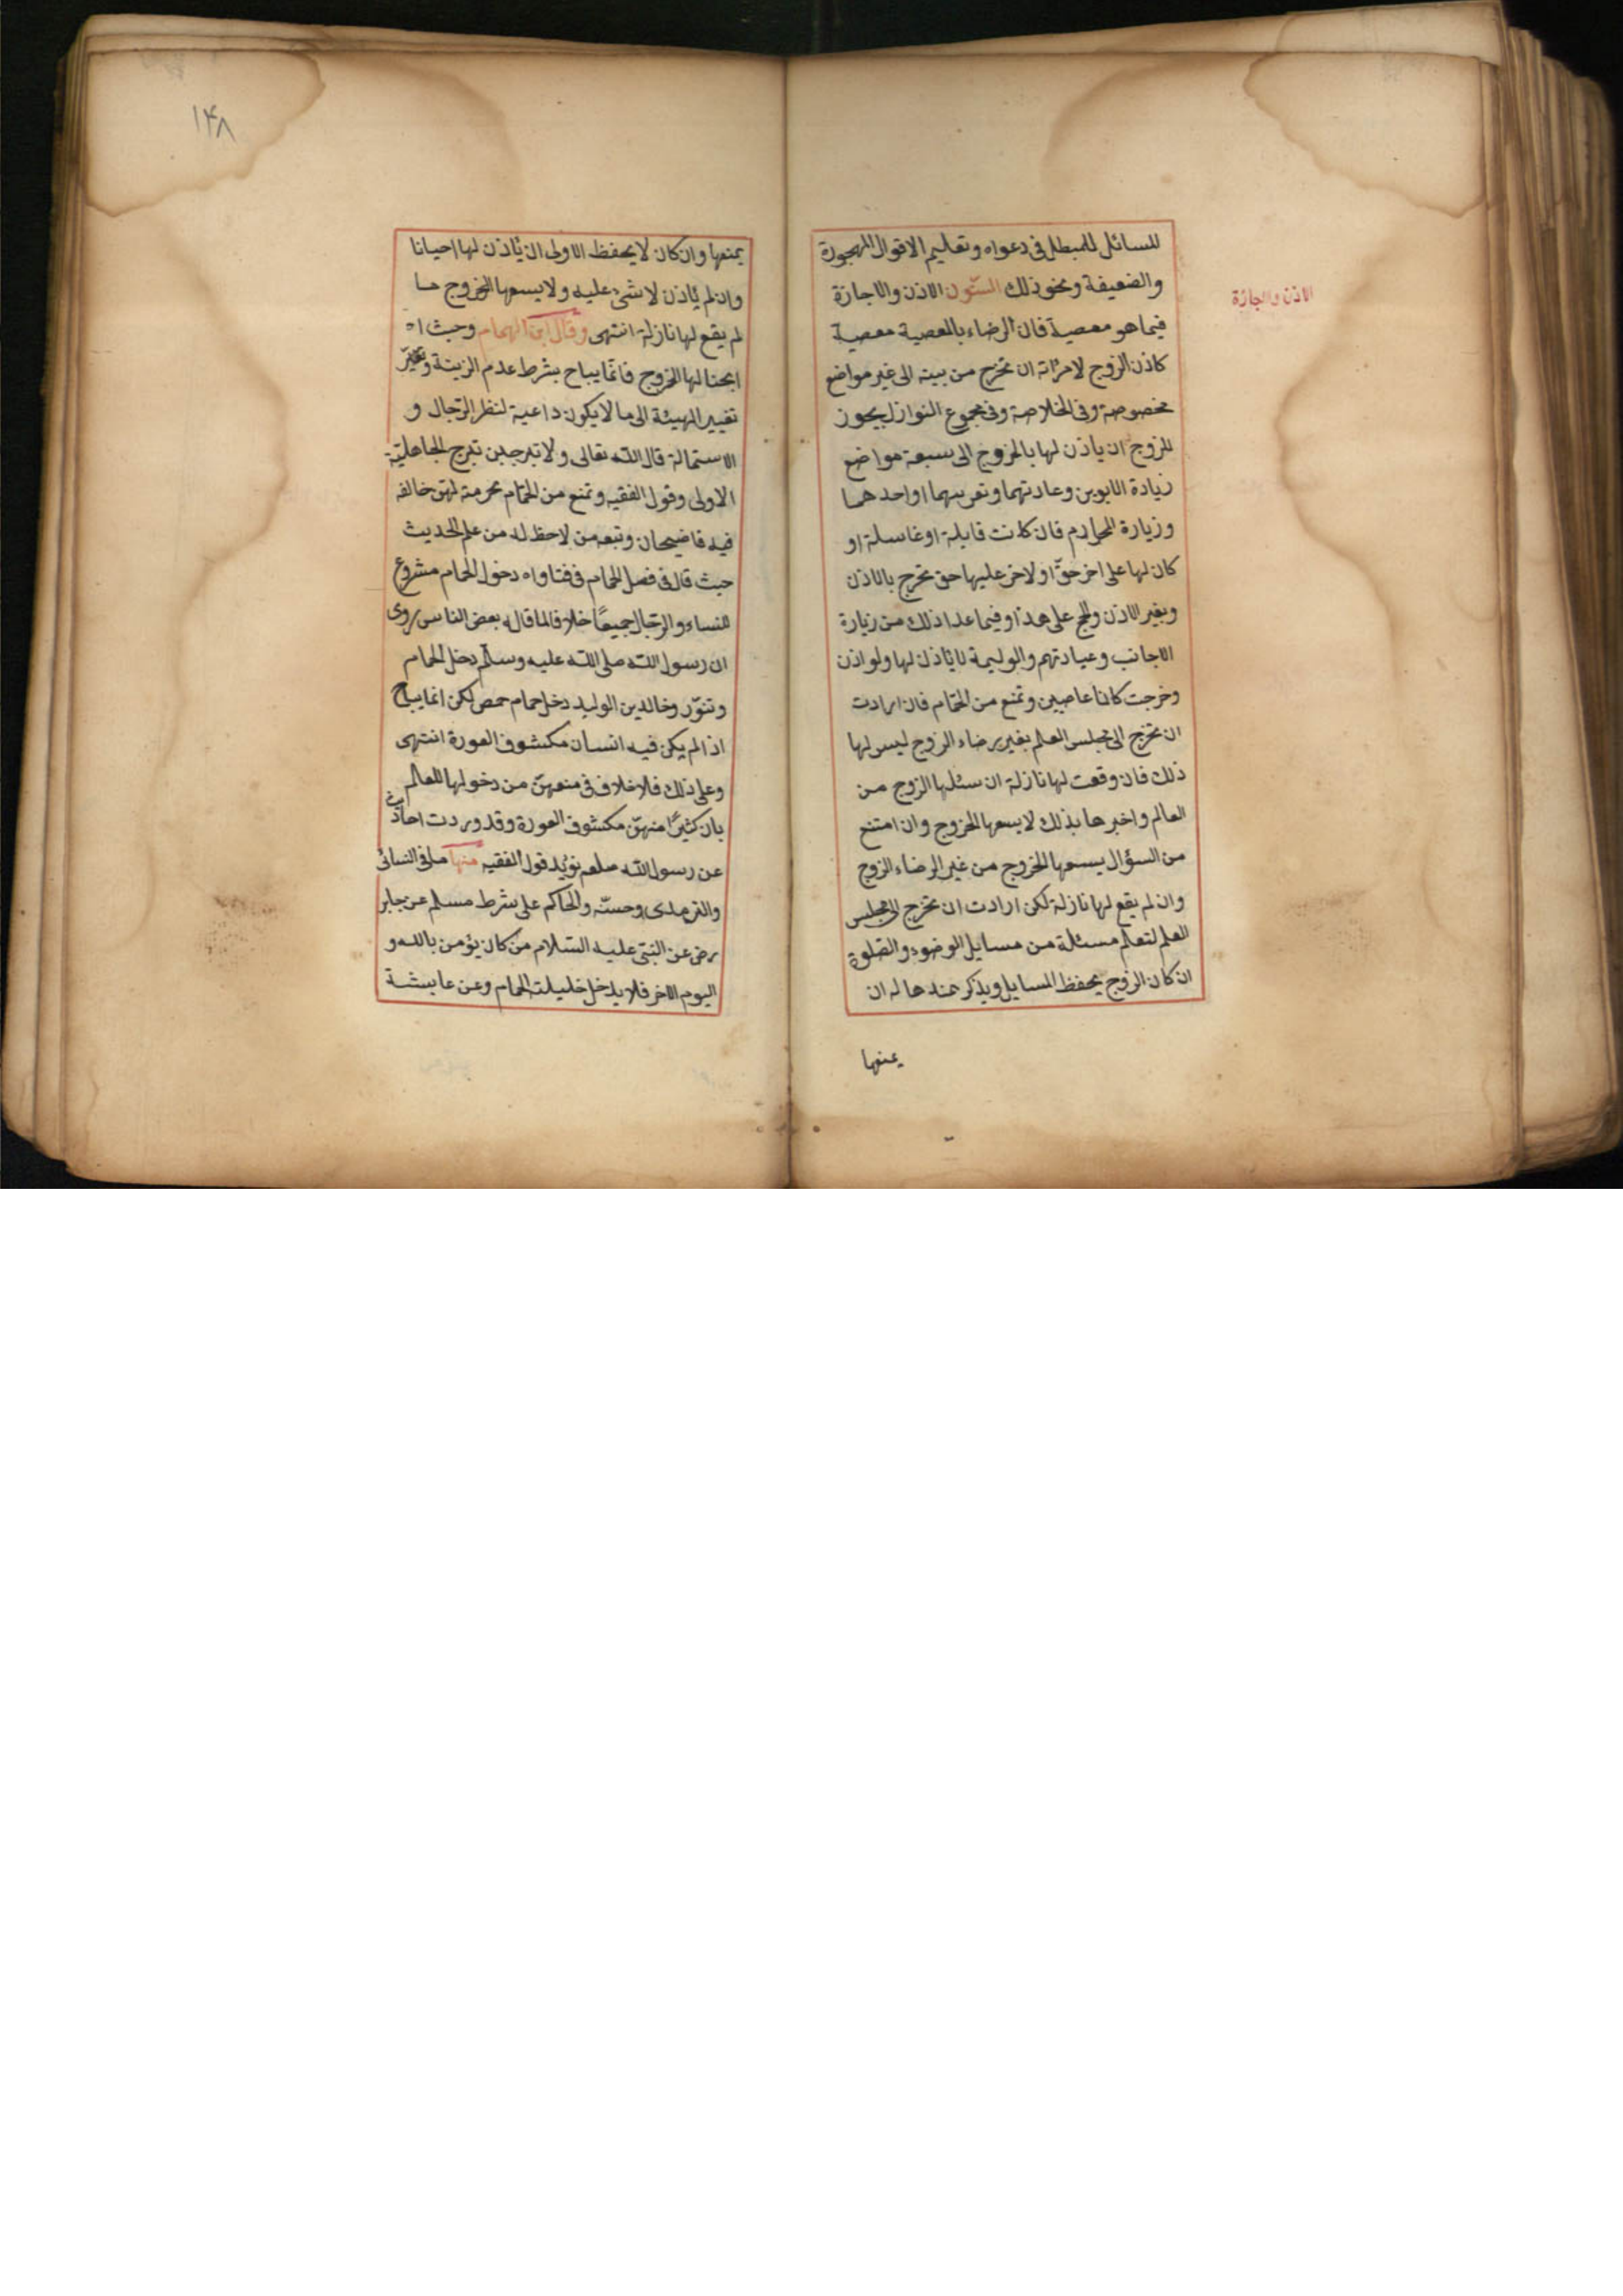 للسائل للمبطل فى دعواه وتعليم الاقوال المهجورة
والضعيفة ونحو ذلك الستّون الاذن والاجازة
الاذن والاجازة
فيما هو معصية فان الرضاء بالمعصية معصية
كاذن الزوج لامرأته ان تخرج من بيته الى غير مواضع
مخصوصة وفى الخلاصة وفى مجموع النوازل يجوز
للزوج ان ياذن لها بالخروج الى سبعة مواضع
زيادة الابوين وعادتهما وتعزيتهما او احدهما
وزيارة المحارم فان كانت قابلة او غاسلة او
كان لها على اخر حقّ او لاخر عليها حق تخرج بالاذن
وبغير الاذن والحج على هذا وفيما عدا ذلك من زيارة
الاجانب وعيادتهم والوليمة لا ياذن لها ولو اذن
وخرجت كانا عاصيين وتمنع من الحمّام فان ارادت
ان تخرج الى مجلس العلم بغير رضاء الزوج ليس لها
ذلك فان وقعت لها نازلة ان سئلها الزوج من
العالم واخبرها بذلك لا يسعها الخروج وان امتنع
من السؤال يسعها الخروج من غير الرضاء الزوج
وان لم يقع لها نازلة لكن ارادت ان تخرج الى مجلس
العلم لتعلم مسئلة من مسايل الوضوء والصّلوة
ان كان الزوج يحفظ المسايل ويذكر عندها له ان
يمنعها
١۴٨
يمنعها وان كان لا يحفظ الاولى ان يأذن لها احيانا
وان لم يأذن لا شئ عليه ولا يسعها الخروج ما
لم يقع لها نازلة انتهى وقال ابن الهمام وحيث اه
ابحنا لها الخروج فانّما يباح بشرط عدم الزينة وتغيّر
تغيير الهيئة الى ما لا يكون داعية لنظر الرّجال و
الاستمالة قال اللّه تعالى ولا تبرجن تبرج الجاهليّة
الاولى وقول الفقيه وتمنع من الحمّام خالفه
فيه قاضيخان وتبعه من لاحظ له من علم الحديث
حيث قال فى فصل الحمام فى فتاواه دخول الحمام مشروع
للنساء والرّجال جميعًا خلافا لما قاله بعض الناس روى
ان رسول اللّه صلى اللّه عليه وسلّم دخل الحمام
وتنوّر وخالد بن الوليد دخل حمام حمص لكن انما يباح
اذا لم يكن فيه انسان مكشوف العورة انتهى
وعلى ذلك فلا خلاف فى منعهنّ من دخولها للعالم
بان كثيرًا منهنّ مكشوف العورة وقد وردت احاديث
عن رسول اللّه صلعم تؤيد قول الفقيه منها ما فى النسائ
والترمذى وحسنّه والحاكم على شرط مسلم عن جابر
رضى عن النبّى عليه السّلام من كان يؤمن بالله و
اليوم الاخر فلا يدخل حليلته الحمام وعن عايشة